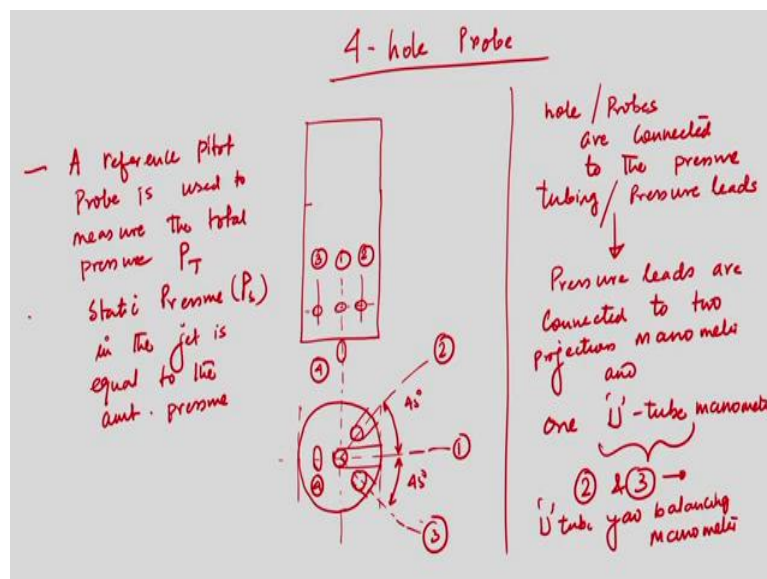 4-hole Probe
— A reference pitot
Probe is used to
measure the total
pressure P_T
Static Pressure (P_s)
in the jet is
equal to the
amt. pressure
③ ① ②
④
②
45°
①
45°
④
③
hole / Probes
are connected
to the pressure
tubing / Pressure leads
Pressure leads are
connected to two
projection manometer
and
one 'U'-tube manomete
② & ③ →
'U' tube yaw balancing
manometer